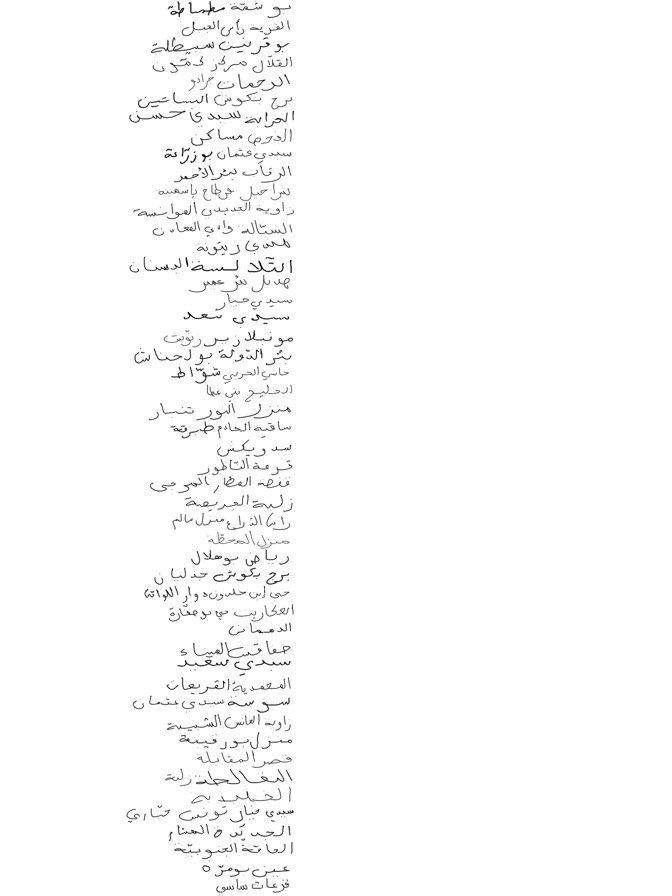 بو شقة مطماطة
القرية رأس الجبل
بوقرنين سبيطلة
القلال مركز كمون
الرحمات جرادو
برج بكوش البساتين
الحرابة سيدي حسن
الفحص مساكن
سيدي عثمان بوزراعة
الرقاب بئر الأحمر
شراحيل قرطاج ياسمينة
زاوية الجديدي الهوانسة
السبالة وادي المعادن
المهدي زيتونة
الثلالسة البستان
هديل بئر عمير
سيدي خيار
سيدي سعد
مونبلازير زنوش
بئر الدولة بولحناش
حاسي الجربي شواط
الخليج بني عطا
منزل النور تنبار
ساقية الخادم طبرقة
سدويكش
قرعة الناظور
قفصة القطار المرجى
زلبة العريضة
رأس الذراع منزل سالم
منزل المحطة
رياض بوهلال
برج بكوش جدليان
حي ابن خلدون دوار اللواتة
العكاريت حي بوصفارة
الدهمان
صفاقس الميناء
سيدي سعيد
المحمدية القريعات
سوسة سيدي عثمان
زاوية العانس الشبيبة
منزل بورقيبة
قصر المقابلة
البقالطة زلبة
الخليدية
سيدي خيار تونس خناري
الجديدة الهناء
العامة الجنوبية
عين بومرة
فرعات ساسي